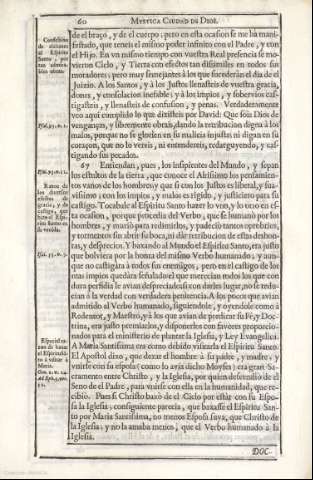 60 MYSTICA CIUDAD DE DIOS.
de el braço, y de el cuerpo; pero en esta ocasion se me há mani-
festado, que teneis el mismo poder infinito con el Padre, y con
el Hijo. En un mismo tiempo con vuestra Real presencia se mo-
vieron Cielo, y Tierra con efectos tan dissimiles en todos sus
moradores; pero muy semejantes à los que sucederàn el dia de el
Juizio. A los Santos, y à los Justos llenasteis de vuestra gracia,
dones, y consolacion inefable; y à los impios, y sobervios cas-
tigasteis, y llenasteis de confusion, y penas. Verdaderamente
veo aqui cumplido lo que dixisteis por David: Que sois Dios de
venganças, y liberamente obrais, dando la retribucion digna à los
malos, porque no se glorien en su malicia injusta, ni digan en su
coraçon, que no lo vereis, ni entendereis, redarguyendo, y cas-
tigando sus pecados.
67 Entiendan, pues, los insipientes del Mundo, y sepan
los estultos de la tierra, que conoce el Altissimo los pensamien-
tos vanos de los hombres; y que si con los Justos es liberal, y sua-
vissimo; con los impios, y malos es rigido, y justiciero para su
castigo. Tocabale al Espiritu Santo hazer lo uno, y lo otro en es-
ta ocasion, porque procedia del Verbo, que se humanò por los
hombres, y muriò para redimirlos, y padeciò tantos oprobrios,
y tormentos sin abrir su boca, ni dàr retribucion de estas deshon-
ras, y desprecios. Y baxando al Mundo el Espiritu Santo, era justo
que bolviera por la honra del mismo Verbo humanado; y aun-
que no castigàra à todos sus enemigos, pero en el castigo de los
mas impios quedàra señalado el que merecian todos los que con
dura perfidia le avian despreciado, si con darles lugar, no se redu-
cian à la verdad con verdadera penitencia. A los pocos que avian
admitido al Verbo humanado, siguiendole, y oyendole como à
Redentor, y Maestro, y à los que avian de predicar su Fè, y Doc-
trina, era justo premiarlos, y disponerlos con favores proporcio-
nados para el ministerio de plantar la Iglesia, y Ley Evangelica.
A Maria Santissima era como debido visitarla el Espiritu Santo.
El Apostol dixo, que dexar el hombre à su padre, y madre, y
unirse con su esposa (como lo avia dicho Moyses) era gran Sa-
cramento entre Christo, y la Iglesia, por quien descendiò de el
Seno de el Padre, para unirse con ella en la humanidad, que re-
cibiò. Pues si Christo baxò de el Cielo por estàr con su Espo-
sa la Iglesia; consiguiente parecia, que baxasse el Espiritu San-
to por Maria Santissima, no menos Esposa suya, que Christo de
la Iglesia; y no la amaba menos, que el Verbo humanado à la
Iglesia.
DOC-
Psal. 93. v. 1.